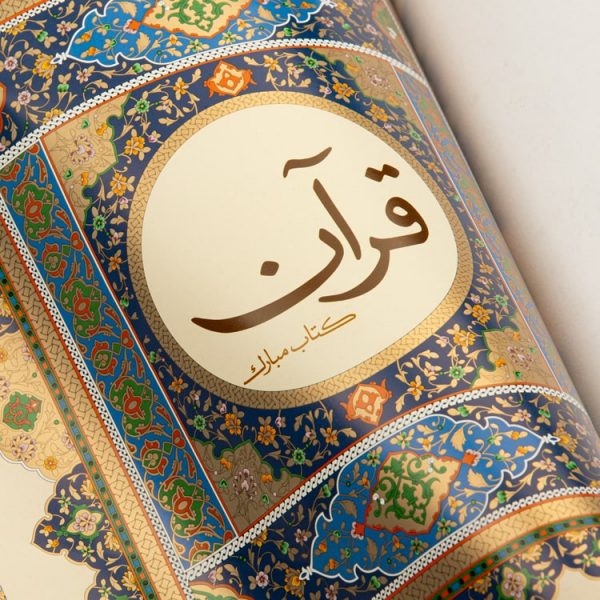 قرآن
کتاب مبارک